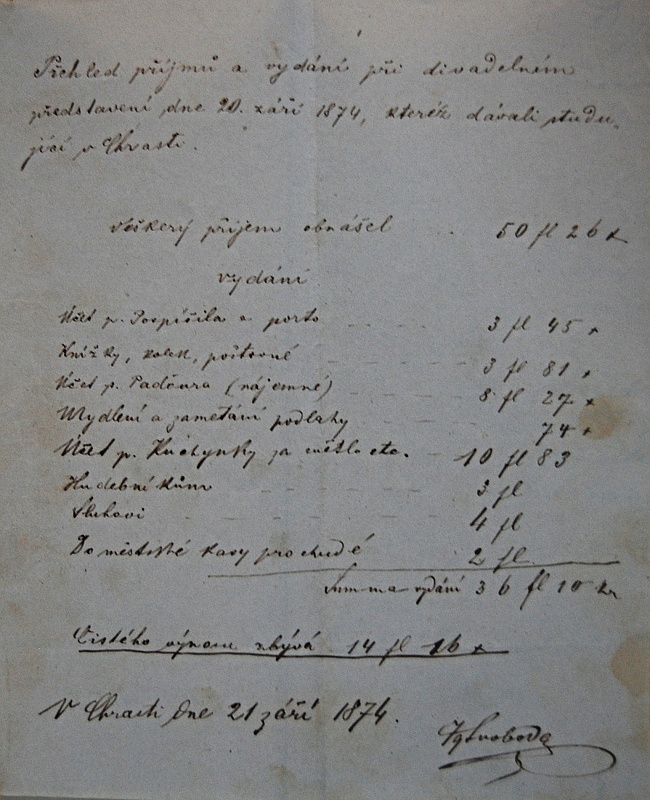 Přehled příjmů a vydání při divadelním
představení dne 20. září 1874, kteréž dávali studu-
jící v Chrasti.
Veškerý příjem obnášel 50 fl 26 x
vydání
Účet p. Pospíšila a porto 3 fl 45 x
Knížky, kolek, poštovné 3 fl 81 x
Účet p. Paďoura (nájemné) 8 fl 27 x
Mydlení a zametání podlahy 74 x
Účet p. Kuchynky za světlo etc. 10 fl 83
Hudební kůru 3 fl
Sluhovi 4 fl
Do městské kasy pro chudé 2 fl
Summa vydání 36 fl 10 kr
Čistého výnosu zbývá 14 fl 16 x
V Chrasti dne 21 září 1874.
Svoboda